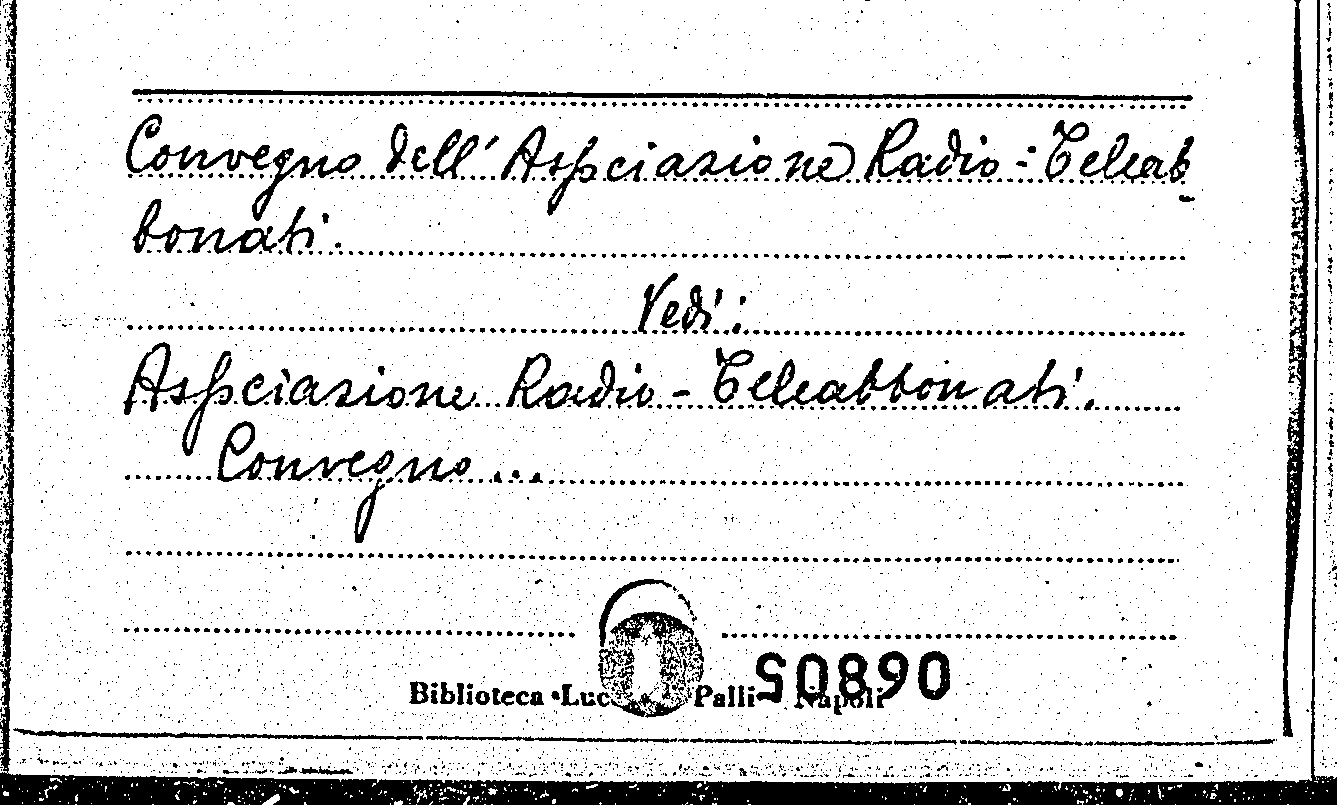 Convegno dell'Associazione Radio-Teleab
bonati.
Vedi:
Associazione Radio-Teleabbonati.
Convegno...
S0890
Biblioteca Palli Napoli